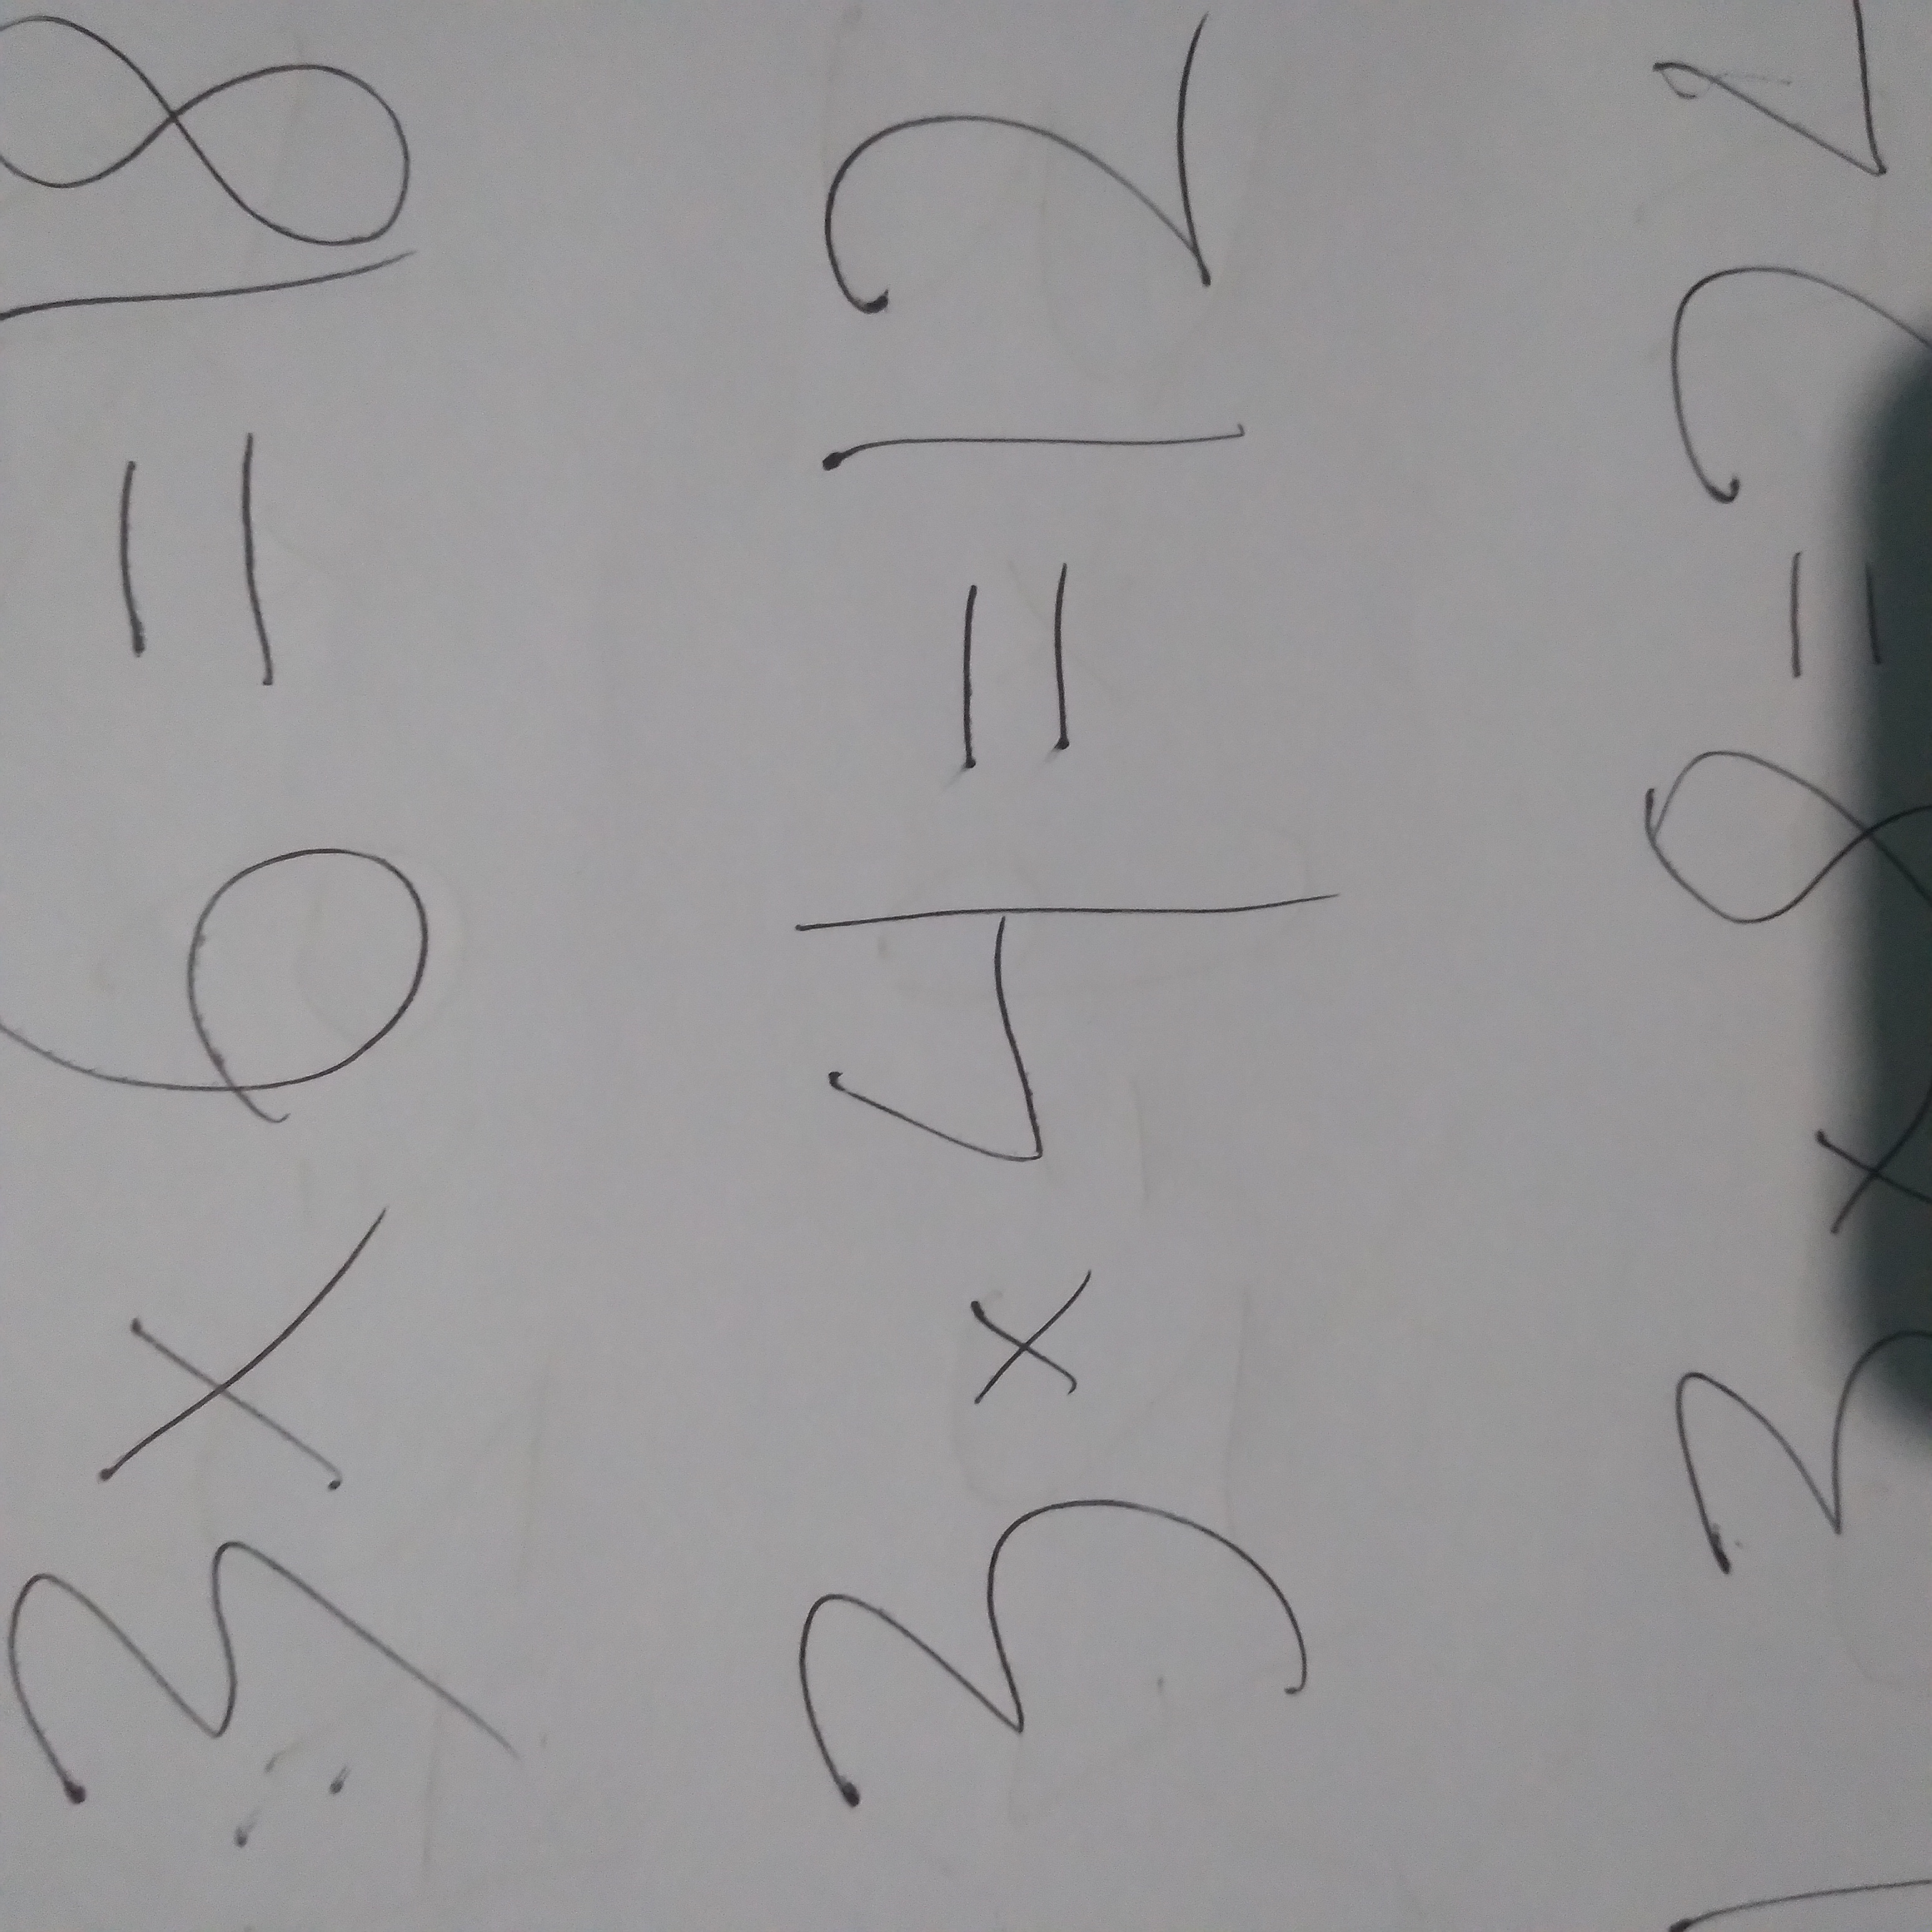 3 x 6 = 18
3 x 4 = 12
3 x 8 = 24